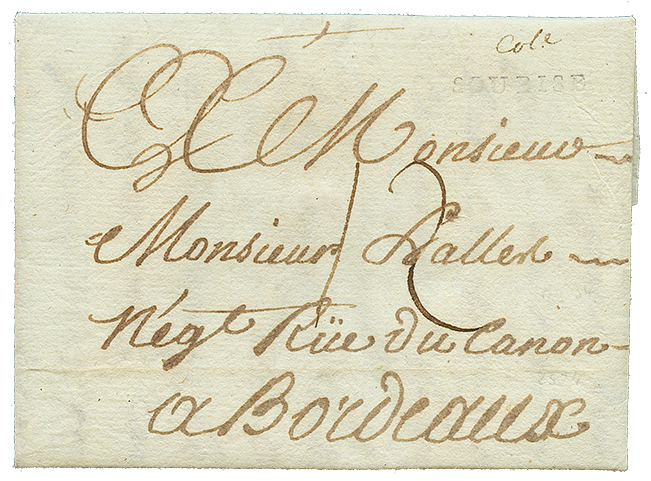 Col.e
SOUBISE
A Monsieur
Monsieur Hallen
12
Négt Rüe du Canon
a Bordeaux